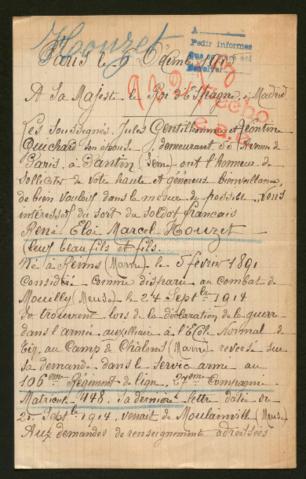 Houzet
A
Pedir informes
Paris le 6
A Sa Majesté le Roi d'Espagne, à Madrid
Les Soussignés, Jules Gentilhomme et Léontine
son épouse, demeurant Avenue de
Paris, à Pantin (Seine) ont l'honneur de
solliciter de votre haute et généreuse bienveillance
de bien vouloir dans la mesure du possible, vous
intéresser du sort du soldat français
René Eloi Marcel Houzet
leur beau fils et fils.
Né à Reims (Marne) le 5 février 1891
Considéré comme disparu au combat de
Mouilly (Meuse) le 24 Septbre 1914
Se trouvant lors de la déclaration de la guerre
dans l'armée auxiliaire à l'Ecole Normal de
Tir, au Camp de Châlons (Marne) reversé sur
sa demande dans le service armé au
106me Régiment de ligne, 27eme Compagnie
Matricule 948, sa dernière lettre datée du
20 Septbre 1914, venait de Moulainville (Meuse)
Aux demandes de renseignement adressées